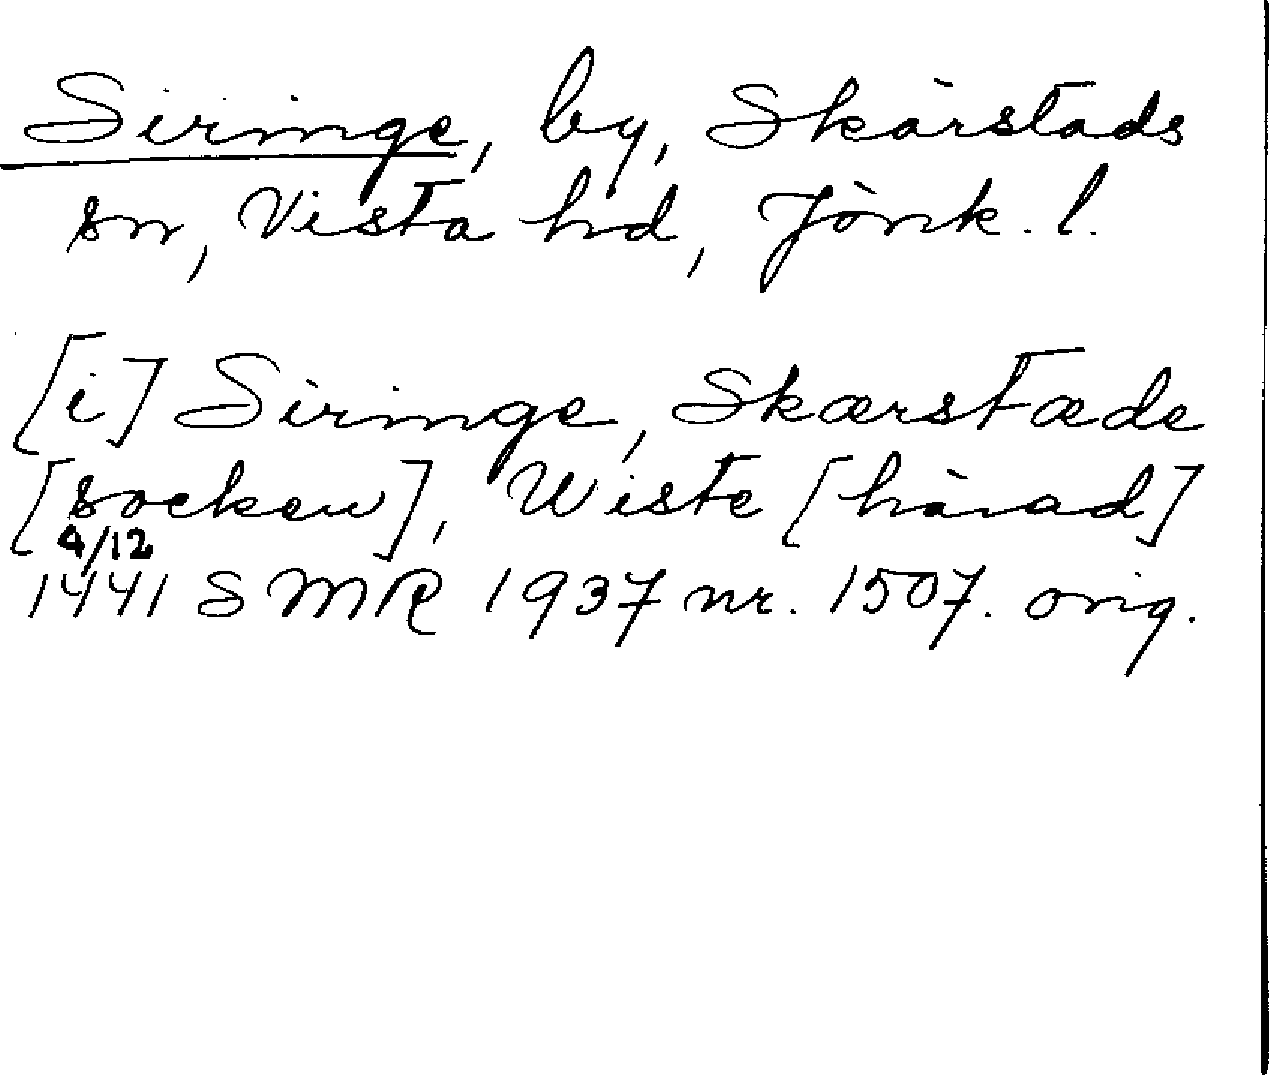 Siringe, by, Skärstads
sn, Vista hd, Jönk. l.
[i] Siringe, Skærstæde
[socken], Wiste [härad]
4/12
1441 SMR 1937 nr. 1507. orig.